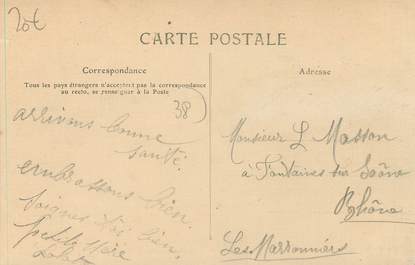 CARTE POSTALE
Correspondance
Tous les pays étrangers n'acceptent pas la correspondance
au recto, se renseigner à la Poste
38
arrivons bonne
santé.
embrassons bien.
Soignes bien.
petite Mère
Adresse
Monsieur L. Masson
à Fontaines Saône
Rhône
Les Marronniers